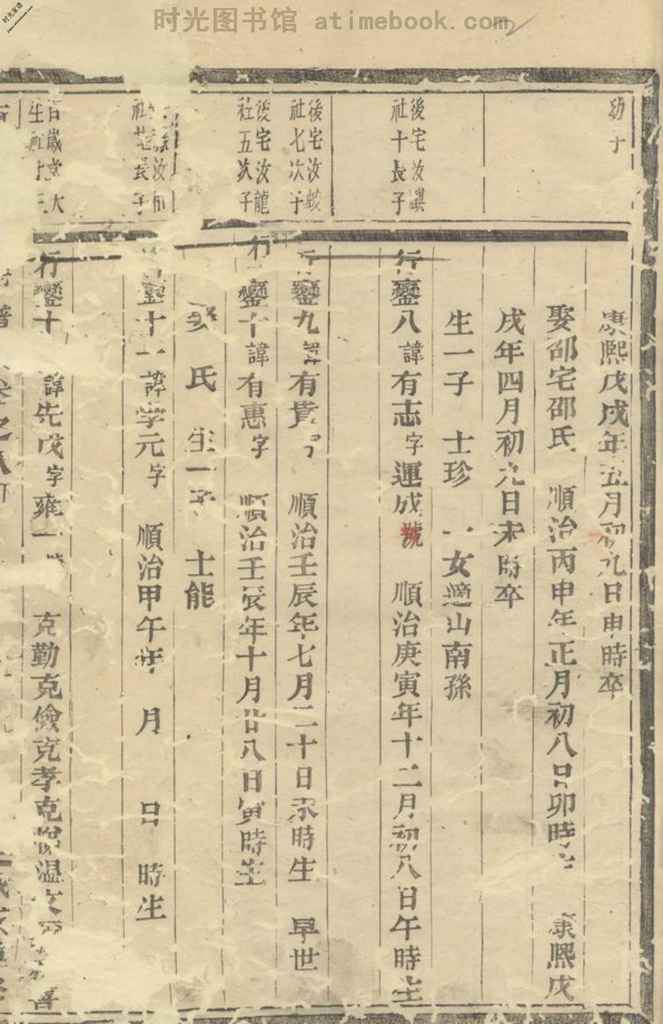 时光图书馆 atimebook.com
幼子
康熙戊戌年五月初九日申時卒
娶邵宅邵氏 順治丙申年正月初八日卯時 康熙戊
戌年四月初九日未時卒
生一子 士珍 一女適山南孫
後宅汝
社十長子
行鑾八諱有志字運成號 順治庚寅年十二月初八日午時生
後宅汝
社七次子
鑾九諱有 順治壬辰年七月二十日未時生 早世
後宅汝龍
社五次子
行鑾十諱有惠字 順治壬辰年十月廿八日寅時生
氏 生一子 士能
汝
社 長子
鑾十一諱学元字 順治甲午年 月 日 時生
百歲堂大
生
行鑾十 諱先 字雍一 克勤克儉克孝克 温文